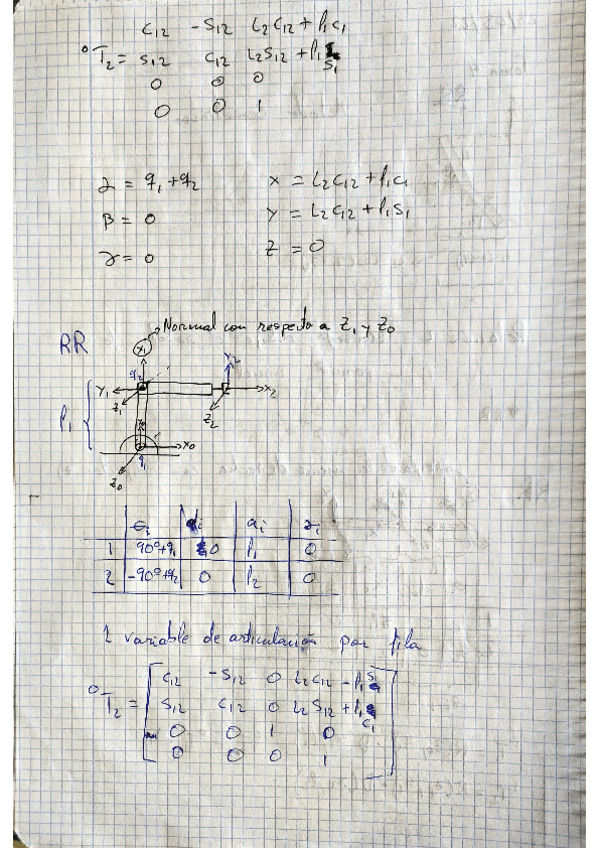 C12 -S12 L2C12 + l1C1
⁰T2 = S12 C12 L2S12 + l1S1
0 0 0
0 0 1
α = q1 + q2 x = L2C12 + l1C1
β = 0 y = L2C12 + l1S1
γ = 0 z = 0
Normal con respecto a Z1 y Z0
RR
X1
q2 Y2
Y1 X2
Z1 Z2
l1
X0
q1
Z0
θi di ai αi
1 90º+q1 0 l1 0
2 -90º+q2 0 l2 0
1 variable de articulación por fila
C12 -S12 0 L2C12 - l1S1
⁰T2 = S12 C12 0 L2S12 + l1C1
0 0 1 0
0 0 0 1